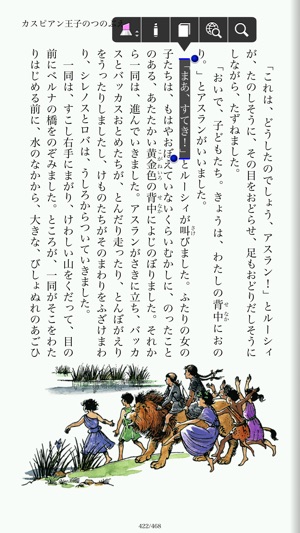 カスピアン王子のつの
「これは、どうしたのでしょう、アスラン！」とルーシィ
が、たのしそうに、その目をおどらせ、足もおどりだしそうに
しながら、たずねました。
「おいで、子どもたち。きょうは、わたしの背中におの
り。」とアスランがいいました。
「まあ、すてき！」とルーシィが叫びました。ふたりの女の
子たちは、もはやおぼえていないくらいむかしに、のったこと
のある、あたたかい黄金色の背中によじのぼりました。それか
ら一同は、進んでいきました。アスランがさきに立ち、バッカ
スとバッカスおとめたちが、とんだり走ったり、とんぼがえり
をうったりしましたし、けものたちがそのまわりをふざけまわ
り、シレノスとロバは、うしろからついていきました。
一同は、すこし右手にまがり、けわしい山をくだって、目の
前にベルナの橋をのぞみました。ところが、一同がそこをわた
りはじめる前に、水のなかから、大きな、びしょぬれのあごひ
422/468